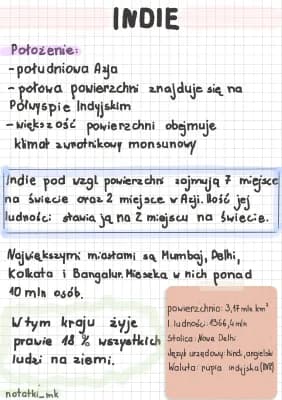 INDIE
Położenie:
- południowa Azja
- połowa powierzchni znajduje się na
Półwyspie Indyjskim
- większość powierzchni obejmuje
klimat zwrotnikowy monsunowy
Indie pod wzgl. powierzchni zajmują 7 miejsce
na świecie oraz 2 miejsce w Azji. Ilość jej
ludności stawia ją na 2 miejscu na świecie.
Największymi miastami są Mumbaj, Delhi,
Kolkata i Bangalur. Mieszka w nich ponad
10 mln osób.
W tym kraju żyje
prawie 18 % wszystkich
ludzi na ziemi.
powierzchnia: 3,17 mln km²
l. ludności: 1366,4 mln
Stolica: Nowe Delhi
Język urzędowy: hindi, angielski
Waluta: rupia indyjska (INR)
notatki_mk